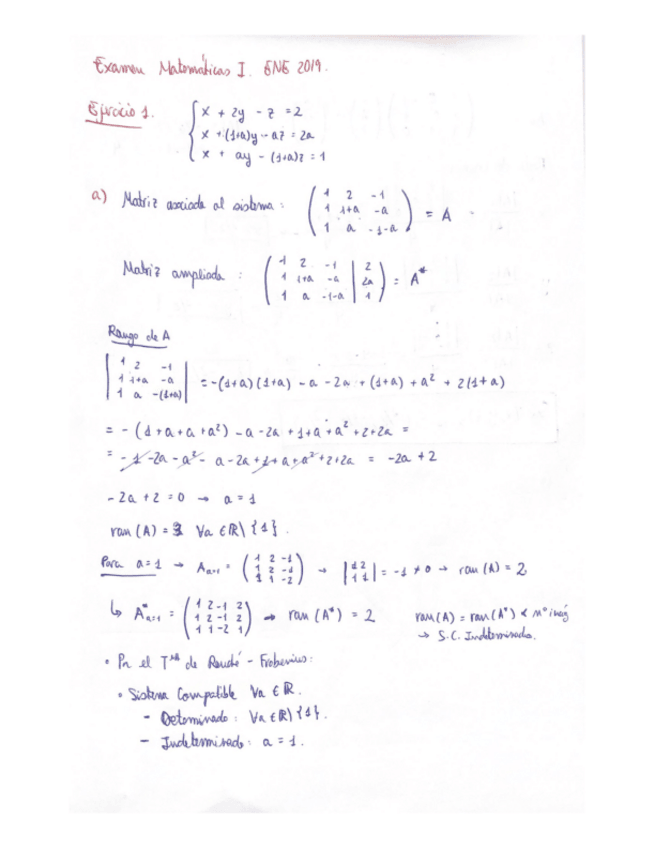 Examen Matemáticas I. ENE 2019.
Ejercicio 1. { x + 2y - z = 2
x + (1+a)y - az = 2a
x + ay - (1+a)z = 1
a) Matriz asociada al sistema: ( 1 2 -1
1 1+a -a
1 a -1-a ) = A
Matriz ampliada: ( 1 2 -1 | 2
1 1+a -a | 2a
1 a -1-a | 1 ) = A*
Rango de A
| 1 2 -1
1 1+a -a
1 a -(1+a) | = -(1+a)(1+a) - a - 2a + (1+a) + a² + 2(1+a)
= - (1+a+a+a²) - a - 2a + 1+a+a²+2+2a =
= - 1 - 2a - a² - a - 2a + 1 + a + a² + 2 + 2a = -2a + 2
- 2a + 2 = 0 → a = 1
ran (A) = 3 ∀a ∈ ℝ\{1}.
Para a=1 → A a=1 = ( 1 2 -1
1 2 -1
1 1 -2 ) → | 1 2
1 1 | = -1 ≠ 0 → ran (A) = 2
↳ A* a=1 = ( 1 2 -1 2
1 2 -1 2
1 1 -2 1 ) → ran (A*) = 2 ran(A) = ran(A*) < nº incóg
→ S.C. Indeterminado.
• Por el Tma de Rouché - Frobenius:
• Sistema Compatible ∀a ∈ ℝ.
- Determinado: ∀a ∈ ℝ\{1}.
- Indeterminado: a = 1.